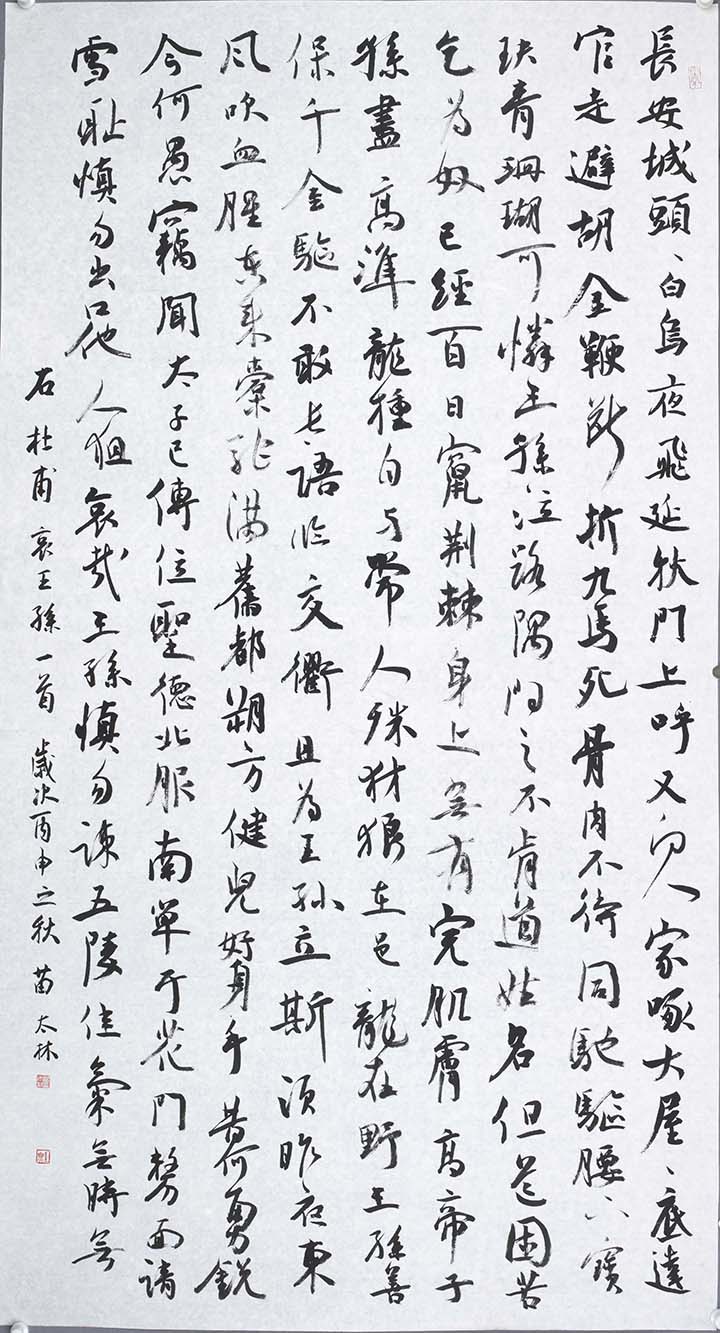 長安城頭、白烏夜飛延秋門上呼又向人家啄大屋、底達
官走避胡金鞭斷折九馬死骨肉不待同馳驅腰下寶
玦青珊瑚可憐王孫泣路隅問之不肯道姓名但道困苦
乞為奴已經百日竄荊棘身上無有完肌膚高帝子
孫盡高準龍種自与常人殊豺狼在邑龍在野王孫善
保千金驅不敢長語臨交衢且為王孫立斯須昨夜東
風吹血腥東來橐駝滿舊都朔方健兒好身手昔何勇銳
今何愚竊聞太子已傳位聖德北服南單于花門剺面請
雪恥慎勿出口他人狙哀哉王孫慎勿疎五陵佳氣無時無
右杜甫哀王孫一首 歲次丙申之秋 苗太林